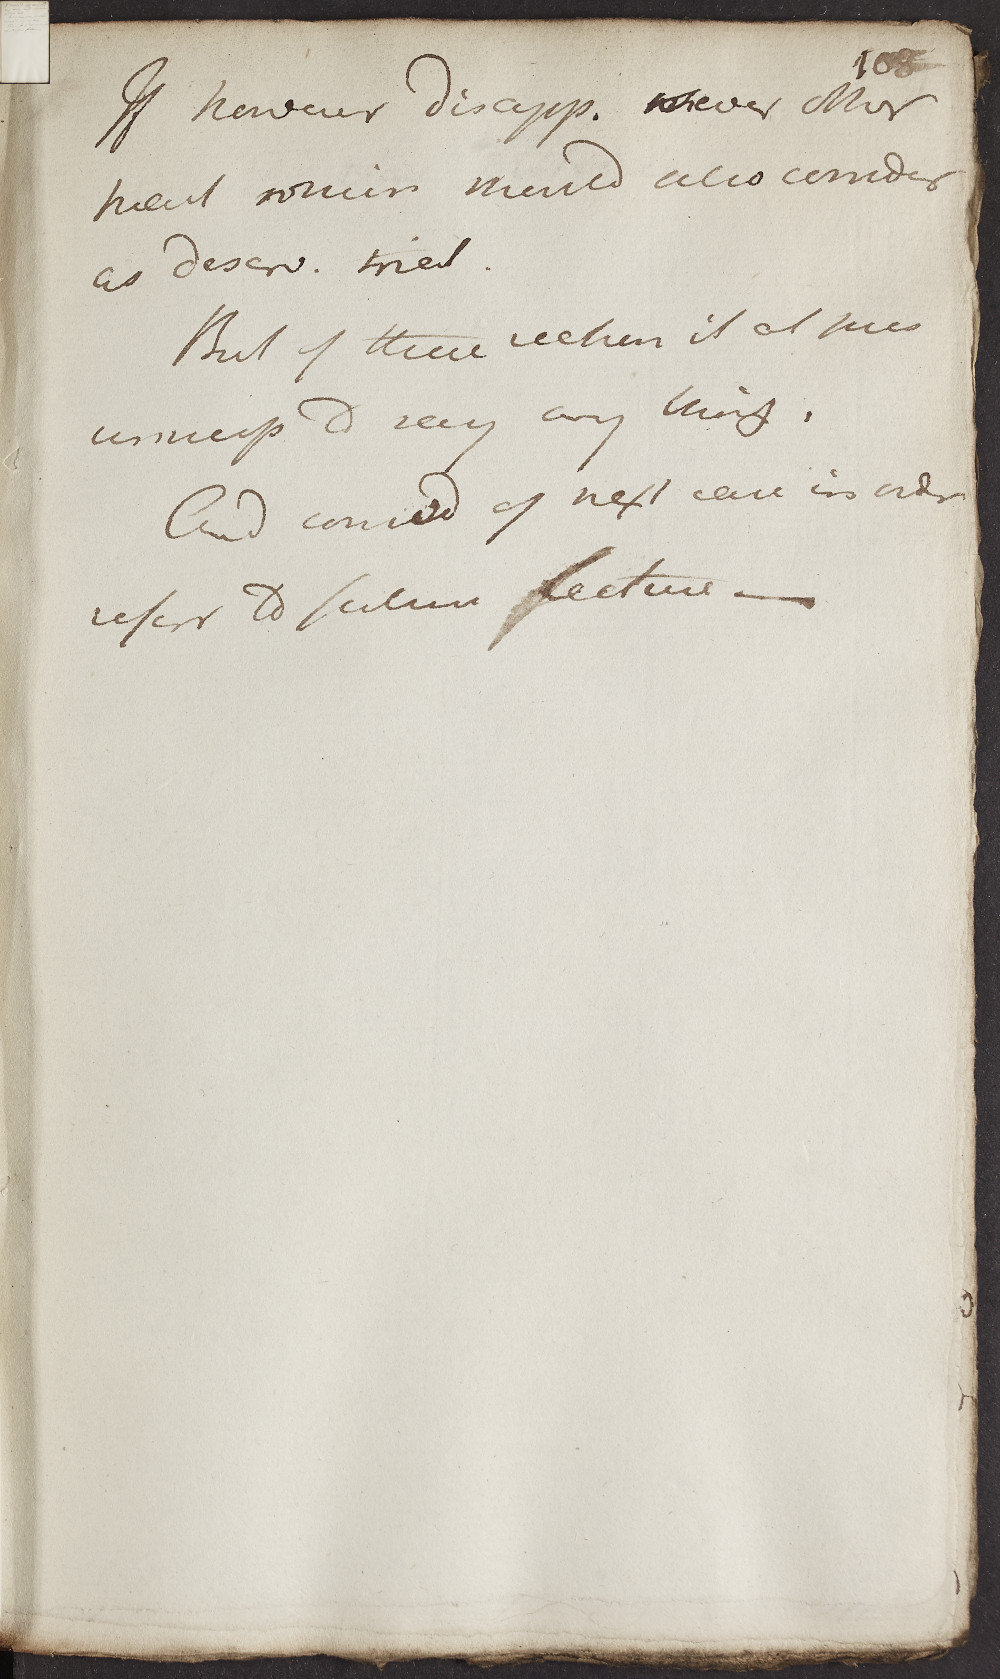 108
If however disapp. never other
heat should also consider
as deserv. trial.
But of these it at pres
unnecess to say any thing.
And consid of next case in order
refer to future Lecture —